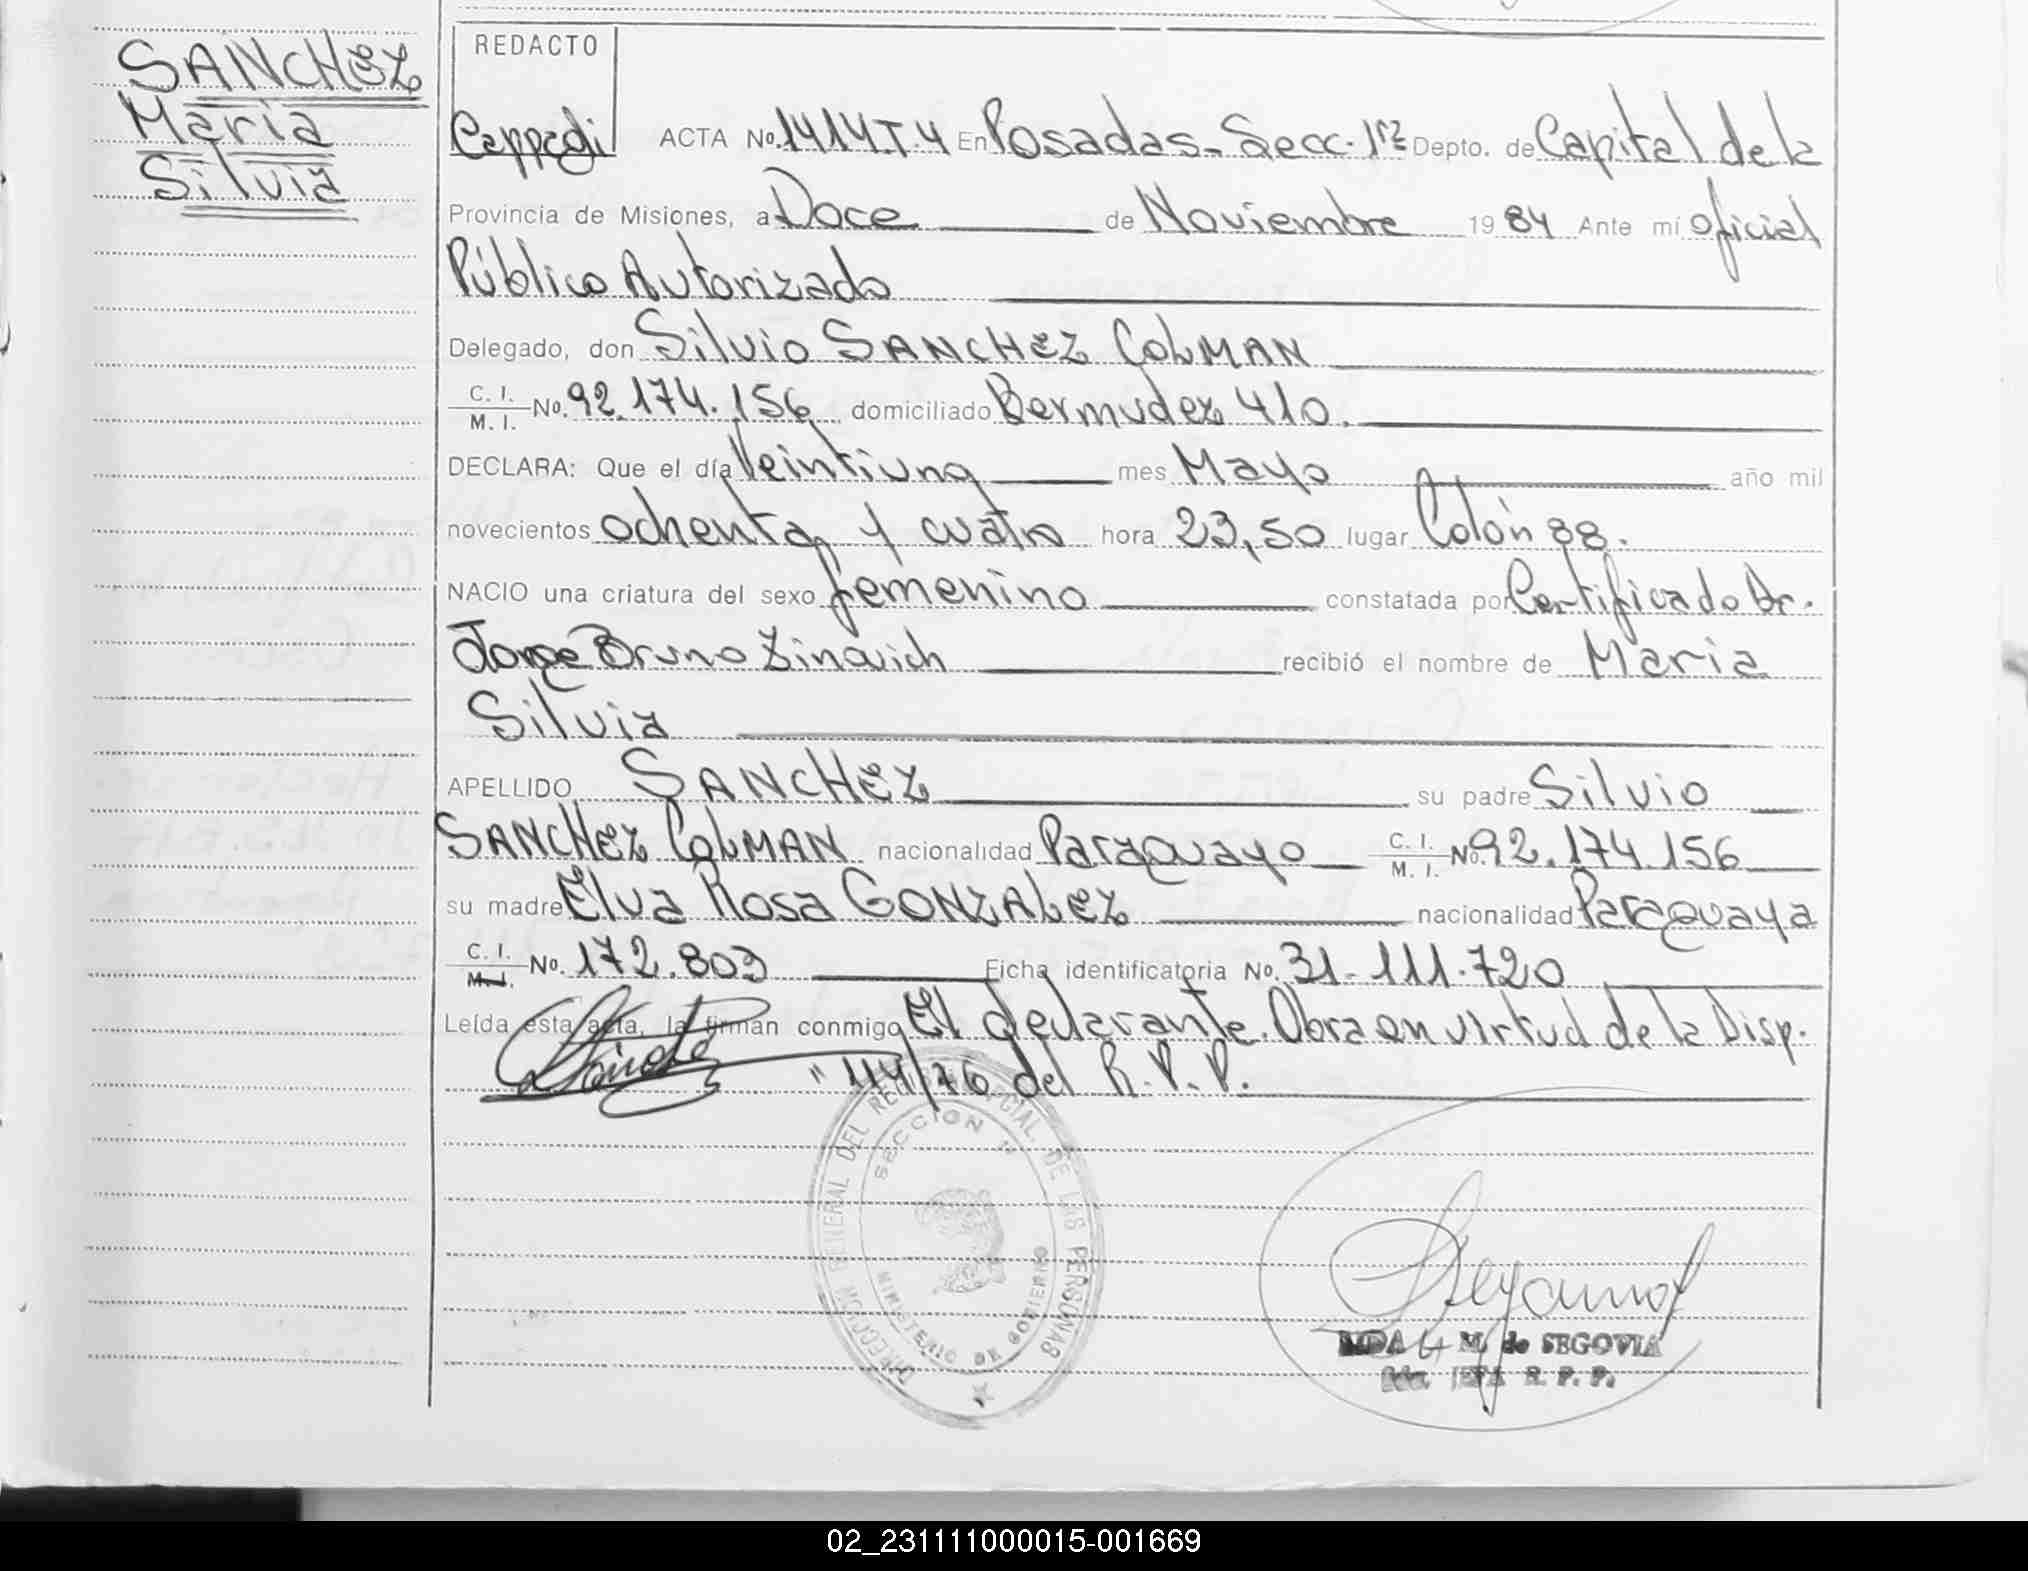 SANCHEZ
Maria
Silvia
REDACTO
ACTA No. 1414.T.4 En Posadas - Secc. 1ra Depto. de Capital de la
Provincia de Misiones, a Doce de Noviembre 1984 Ante mí oficial
Público Autorizado
Delegado, don Silvio SANCHEZ COLMAN
C. I. M. I. No. 92.174.156 domiciliado Bermudez 410.
DECLARA: Que el día Veintiuno mes Mayo año mil
novecientos ochenta y cuatro hora 23,50 lugar Colón 88.
NACIO una criatura del sexo femenino constatada por Certificado Dr.
Jorge Bruno Zinovich recibió el nombre de Maria
Silvia
APELLIDO SANCHEZ su padre Silvio
SANCHEZ COLMAN nacionalidad Paraguayo C. I. M. I. No. 92.174.156
su madre Elva Rosa GONZALEZ nacionalidad Paraguaya
C. I. M. I. No. 172.803 Ficha identificatoria No. 31-111.720
Leída esta acta, la firman conmigo El declarante. Obra en virtud de la Disp.
" 114/76 del R.P.P.
DIRECCION GENERAL DEL REGISTRO PCIAL. DE LAS PERSONAS
SECCION 1ª
MINISTERIO DE GOBIERNO
M. de SEGOVIA
JEFA R. P. P.
02_231111000015-001669